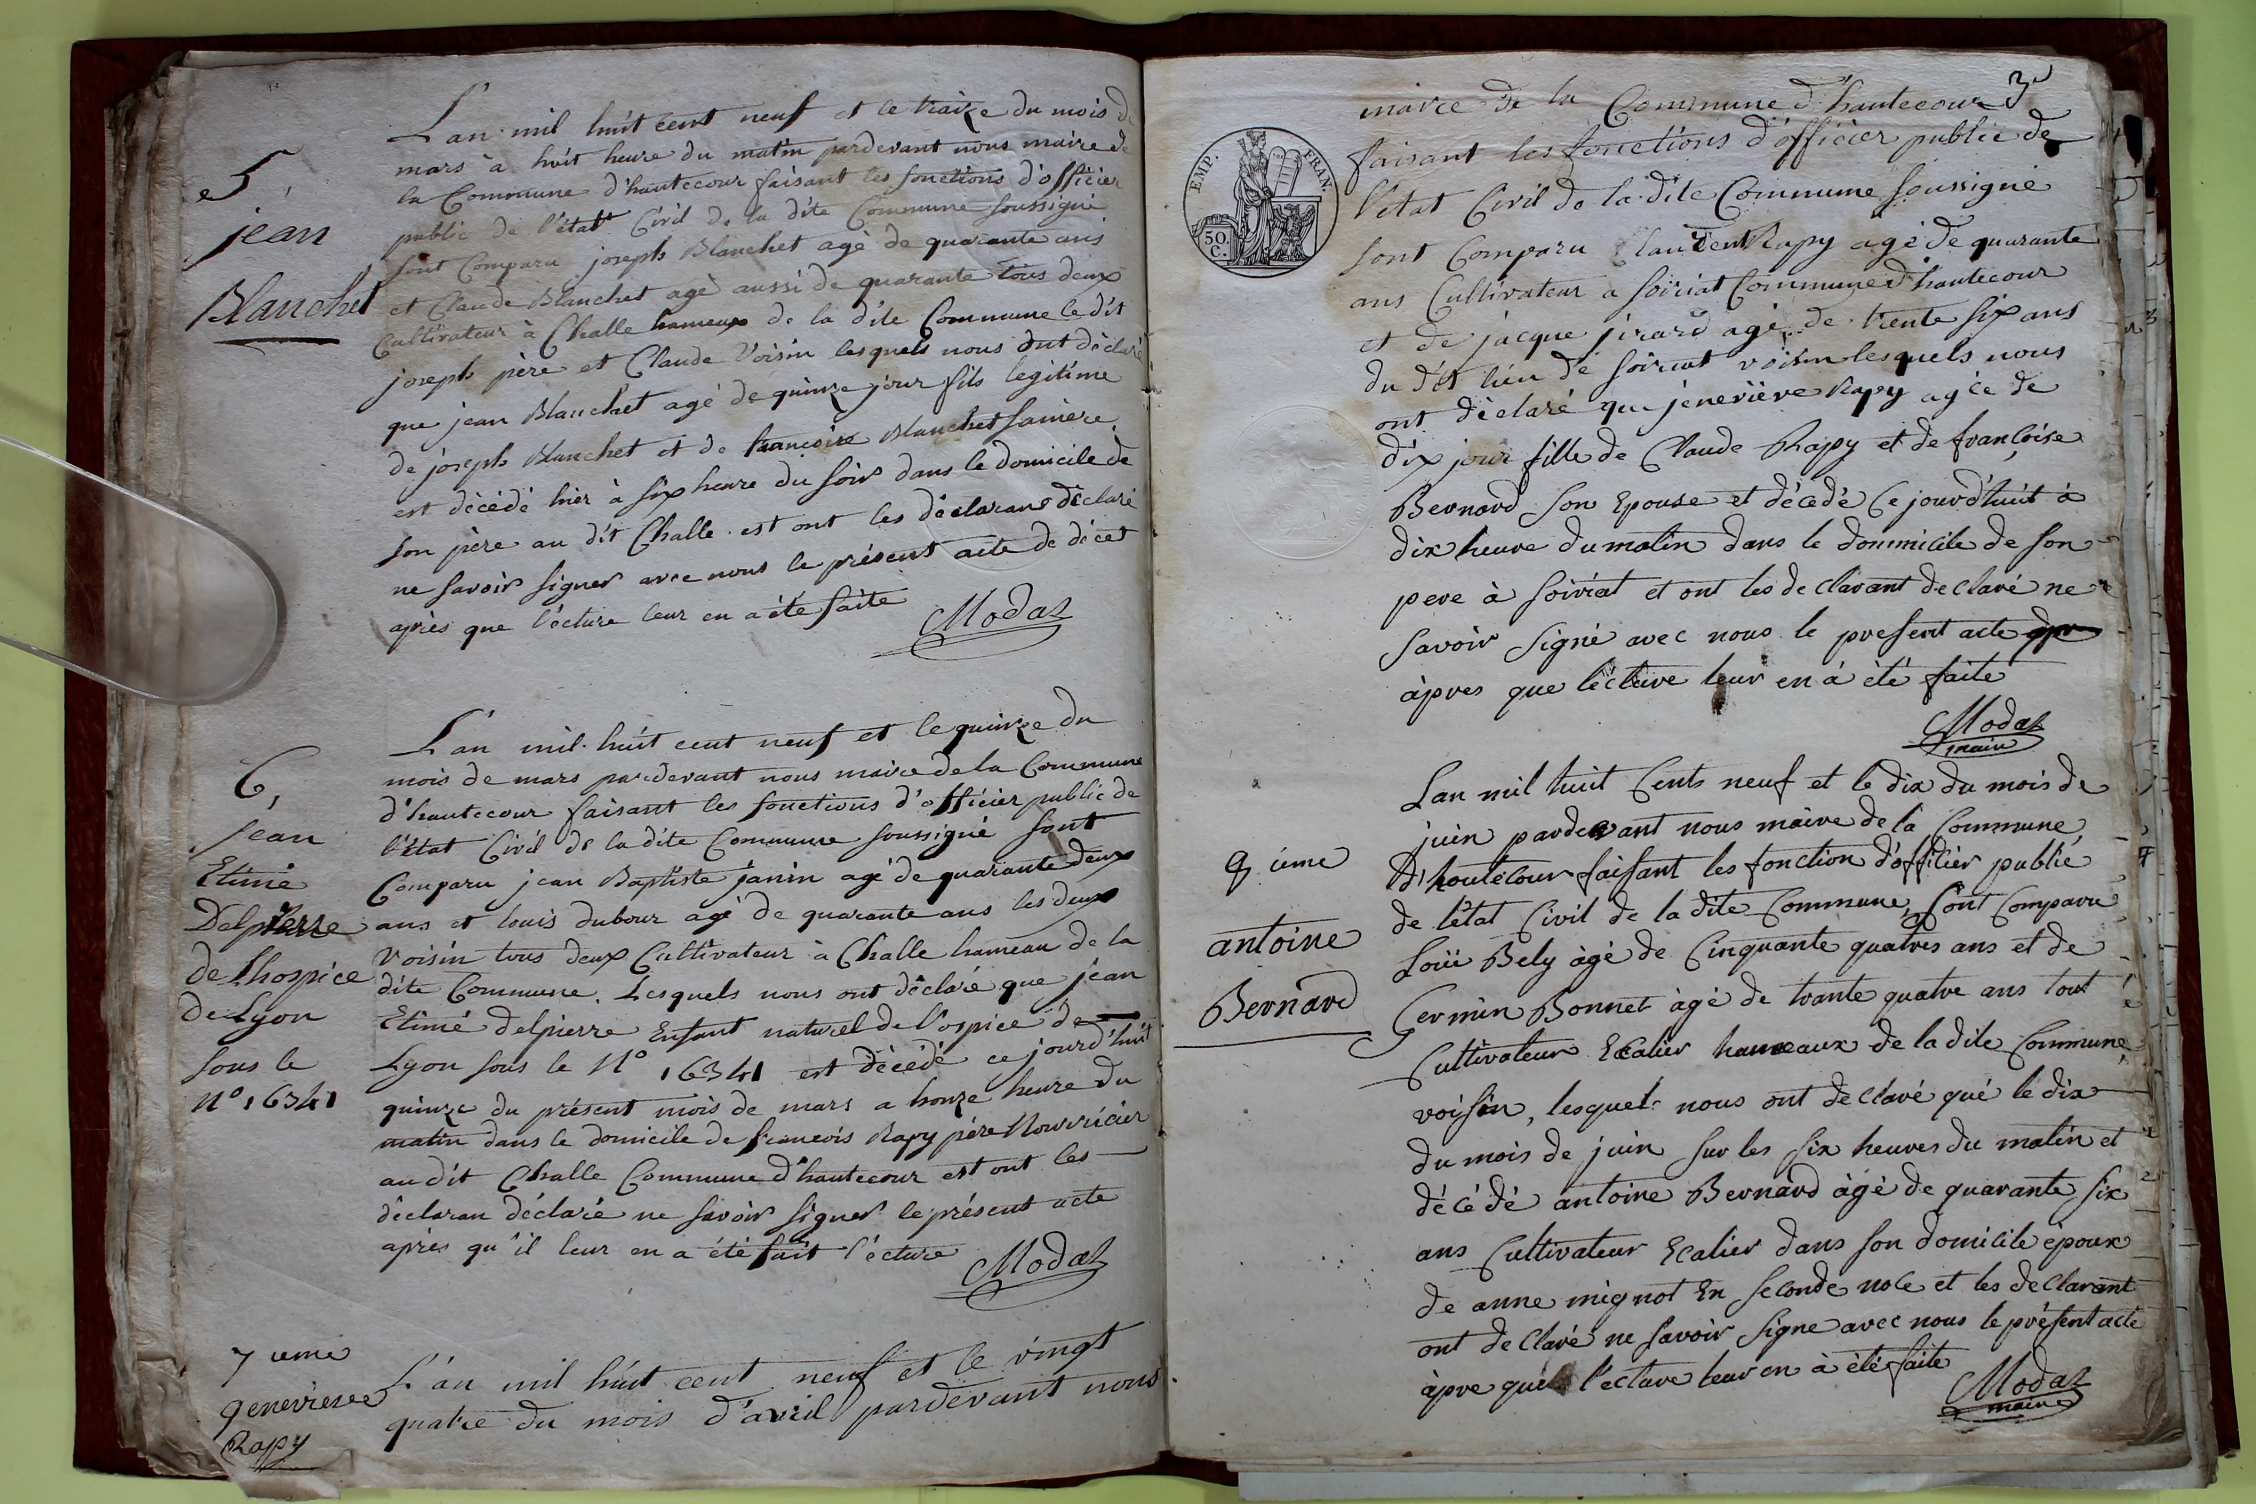 5,
jean
Blanchet
L'an mil huit cent neuf et le traize du mois de
mars à huit heure du matin pardevant nous maire de
la Commune d'hautecour faisant les fonctions d'officier
public de l'état Civil de la dite Commune soussigné
sont Comparu joseph Blanchet agé de quarante ans
et Claude Blanchet agé aussi de quarante tous deux
Cultivateur à Challe hameau de la dite Commune le dit
joseph père et Claude Voisin lesquels nous ont déclaré
que jean Blanchet agé de quinze jour fils légitime
de joseph Blanchet et de françoise Blanchet
est décédé hier à six heure du soir dans le domicile de
son père au dit Challe est ont les déclarans déclaré
ne savoir signer avec nous le présent acte de décet
après que l'écture leur en a été faite
Modas
6,
jean
Etimé
Delpierre
de l'hospice
de Lyon
sous le
N° 16341
L'an mil huit cent neuf et le quinze du
mois de mars pardevant nous maire de la Commune
d'hautecour faisant les fonctions d'officier public de
l'état Civil de la dite Commune soussigné sont
Comparu jean Baptiste janin agé de quarante deux
ans et louis dubour agé de quarante ans les deux
Voisin tous deux Cultivateur à Challe hameau de la
dite Commune. Lesquels nous ont déclaré que jean
Etimé delpierre Enfant naturel de l'ospice de
Lyon sous le N° 16341 est décédé ce jourd'huit
quinze du présent mois de mars a honze heure du
matin dans le domicile de francois Rapy père Nourricier
au dit Challe Commune d'hautecour est ont les
déclaran déclaré ne savoir signer le présent acte
après qu'il leur en a été fait l'écture
Modas
7 ieme
genevieve
Rapy
L'an mil huit cent neuf et le vingt
quatre du mois d'avril pardevant nous
3
EMP. FRAN.
50. C.
maire de la Commune d'hautecour
faisant les fonctions d'officier public de
l'état Civil de la dite Commune soussigné
sont Comparu Rapy agé de quarante
ans Cultivateur a soiriat Commune d'hautecour
et de jacque jirard agé de trente six ans
du dit lieu de soiriat voisin lesquels nous
ont déclaré que jéneviève Rapy agée de
dix jour fille de Claude Rapy et de françoise
Bernard son Epouse et décedé Ce jourd'huit à
dix heure du matin dans le dommicile de son
pere à soiriat et ont les declarant declaré ne
savoir signé avec nous le present acte
àpres que lécture leur en à été faite
Modas
maire
8 ieme
antoine
Bernard
Lan mil huit Cents neuf et le dix du mois de
juin pardevant nous maire de la Commune
d'hautecour faisant les fonction d'officier publié
de l'état Civil de la dite Commune, sont Comparu
Loüi Bely àgé de Cinquante quatres ans et de
Germin Bonnet àgé de trante quatre ans tout
Cultivateur Ecalier hameaux de la dite Commune
voisin, lesquel nous ont declaré qué le dix
du mois de juin sur les six heures du matin et
décédé antoine Bernard àgé de quarante six
ans Cultivateur Ecalier dans son domicile époux
de anne mignot En seconde noce et les declarant
ont declaré ne savoir signe avec nous le présent acte
àpre que l'ecture leur en à été faite
Modas
maire